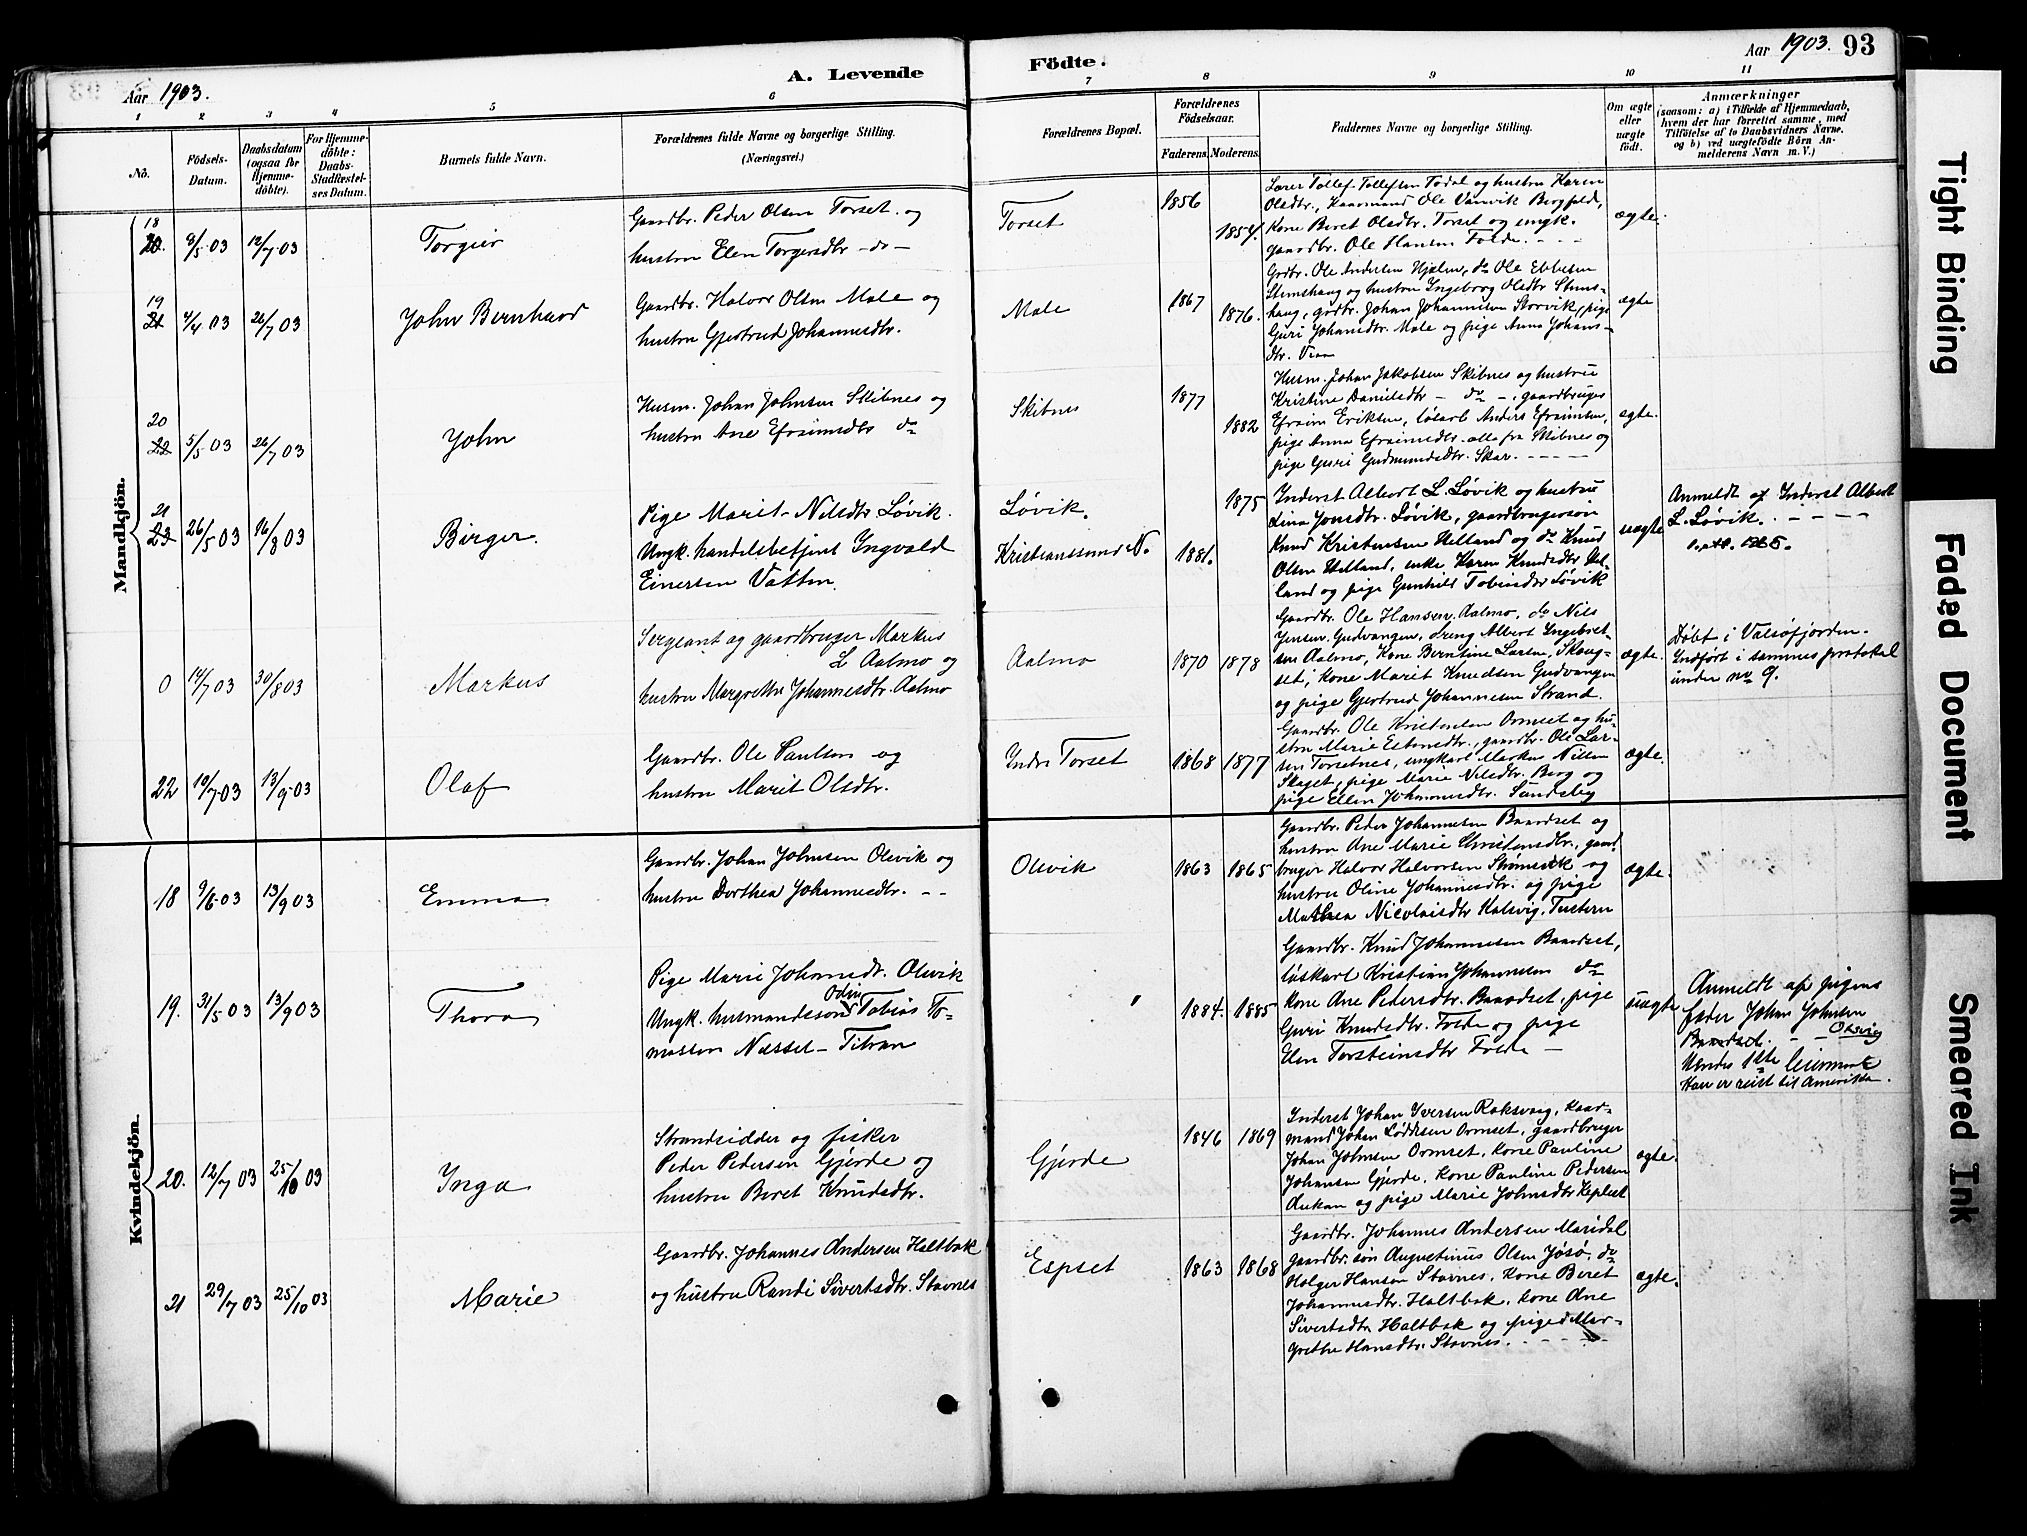 Aar 1903.
A. Levende
Födte.
Aar 1903. 93
1 2 3 4 5 6 7 8 9 10 11
No.
Födsels-Datum.
Daabsdatum (ogsaa for Hjemmedöbte).
For Hjemmedöbte: Daabs-Stadfæstelses Datum.
Barnets fulde Navn.
Forældrenes fulde Navne og borgerlige Stilling.
(Næringsvei.)
Forældrenes Bopæl.
Forældrenes Födselsaar.
Faderens. Moderens.
Faddernes Navne og borgerlige Stilling.
Om ægte eller uægte födt.
Anmærkninger
(saasom: a) i Tilfælde af Hjemmedaab,
hvem der har forrettet samme, med
Tilföielse af to Daabsvidners Navne,
og b) ved uægtefödte Börn Anmelderens Navn m. V.)
Mandkjön.
18
20. 9/5 03 12/7 03 Torgeir
Gaardbr. Peder Olsen Torset og
hustru Elen Torgersdtr -do-
Torset 1856 1854.
Lærer Tollef Tollefsen Todal og hustru Karen
Olsdtr., Kaarmand Ole Vaagvik Bergfald,
Kone Beret Olsdtr. Torset og ungk.
gaardbr. Ole Hansen Folde.
ægte.
19
21 4/4 03 26/7 03 John Bernhard
Gaardbr. Halvor Olsen Male og
hustru Gjertrud Johannesdtr.
Male 1867 1876.
Grdbr. Ole Andersen Hjelen, do Ole Ebbesen
Stenshaug og hustru Ingeborg Olsdtr Stens-
haug, grdbr. Johan Johannesen Storvik, pige
Guri Johnsdtr. Male og pige Anna Johans-
dtr.
ægte
20
22 5/5 03 26/7 03 John
Husm. Johan Johnsen Skibnes og
hustru Ane Efraimsdtr do
Skibnes 1877 1882
Husm. Johan Jakobsen Skibnes og hustru
Kristine Danielsdtr - do -, gaardbruger
Efraim Eriksen, løskarl Anders Efraimsen,
pige Anna Efraimsdtr. alle fra Skibnes og
pige Guri Gudmundsdtr. Skar.
ægte.
21
23 26/5 03 16/8 03 Birger.
Pige Marit Nilsdtr Løvik.
Ungk. handelsbetjent Ingvald
Einersen Vatten.
Løvik.
Kristianssund N. 1881. 1875
Inderst Albert L. Løvik og hustru
Lina Jonsdtr. Løvik, gaardbrugersøn
Knud Kristensen Helland og do Knud
Olsen Helland, enke Karen Knudsdtr Hel-
land og pige Gunhild Tobiasdtr Løvik
uægte
Anmeldt af Inderst Albert
L. Løvik.
0 14/7 03 30/8 03 Markus
Sergeant og gaardbruger Markus
L Aalmo og
hustru Margrethe Johannesdtr. Aalmo
Aalmo 1870 1878
Gaardbr. Ole Hansen Aalmo, do Nils
Jensen Gudvangen, dreng Albert Ingebret-
sen Aalmo, Kone Berntine Larsen, Skaug-
set, kone Marit Knudsen Gudvangen
og pige Gjertrud Johannesen Strand.
ægte.
Døbt i Valsøfjorden.
Indført i sammes protokol
under no 9.
22 10/7 03 13/9 03 Olaf
Gaardbr. Ole Paulsen og
hustru Marit Olsdtr.
Indre Torset 1868 1877
Gaardbr. Ole Kristensen Ormset og hu-
stru Marie Estensdtr., gaardbr. Ole Lar-
sen Torsetnes, ungkarl Markus Nilsen
Skaget, pige Marie Nilsdtr. Berg og
pige Ellen Johannesdtr. Sandsbug
ægte.
Kvindekjön.
18 9/6 03 13/9 03 Emma
Gaardbr. Johan Johnsen Olsvik og
hustru Dorthea Johannesdtr.
Olsvik 1863 1865
Gaardbr. Peder Johannesen Baardset og
hustru Ane Marie Christensdtr., gaard
bruger Halvor Halvorsen Strømsvik og
hustru Oline Johannesdtr. og pige
Mathea Nicolaisdtr Kalsvig, Tustern
ægte.
19. 31/5 03 13/9 03 Thora
Pige Marie Johansdtr. Olsvik
Ungk. husmandssøn Odin Tobias To-
massen Næsset - Titran
" 1884. 1885
Gaardbr. Knud Johannesen Baardset,
løskarl Kristian Johannesen do
kone Ane Pedersdtr. Baardset, pige
Guri Knudsdtr. Folde og pige
Elen Torsteinsdtr Folde -
uægte
Anmeldt af pigens
fader Johan Johnsen
Baardset. Olsvig
Hendes 1ste leiermaal
Han er reist til Amerika.
20. 12/7 03 25/10 03 Inga
Strandsidder og fisker
Peder Pedersen Gjerde og
hustru Beret Knudsdtr.
Gjerde 1846 1869
Inderst Johan Iversen Roksvaag, kaar-
mand Johan Loddesen Ormset, gaardbruger
Johan Johnsen Ormset, kone Pauline
Johansen Gjerde, kone Pauline Pedersen
Aukan og pige Marie Johnsdtr
ægte.
21 29/7 03 25/10 03 Marie
Gaardbr. Johannes Andersen Haltbak
og hustru Randi Sivertsdtr. Stavnes
Espset 1863 1868
Gaardbr. Johannes Andersen Maridal
gaardbr. søn Augustinus Olsen Jøsø, do
Holger Hansen Stavnes, kone Beret
Johannesdtr. Haltbak, kone Ane
Sivertsdtr Haltbak og pige Mar-
grethe Hansdtr. Stavnes.
ægte.
Tight Binding
Faded Document
Smeared Ink